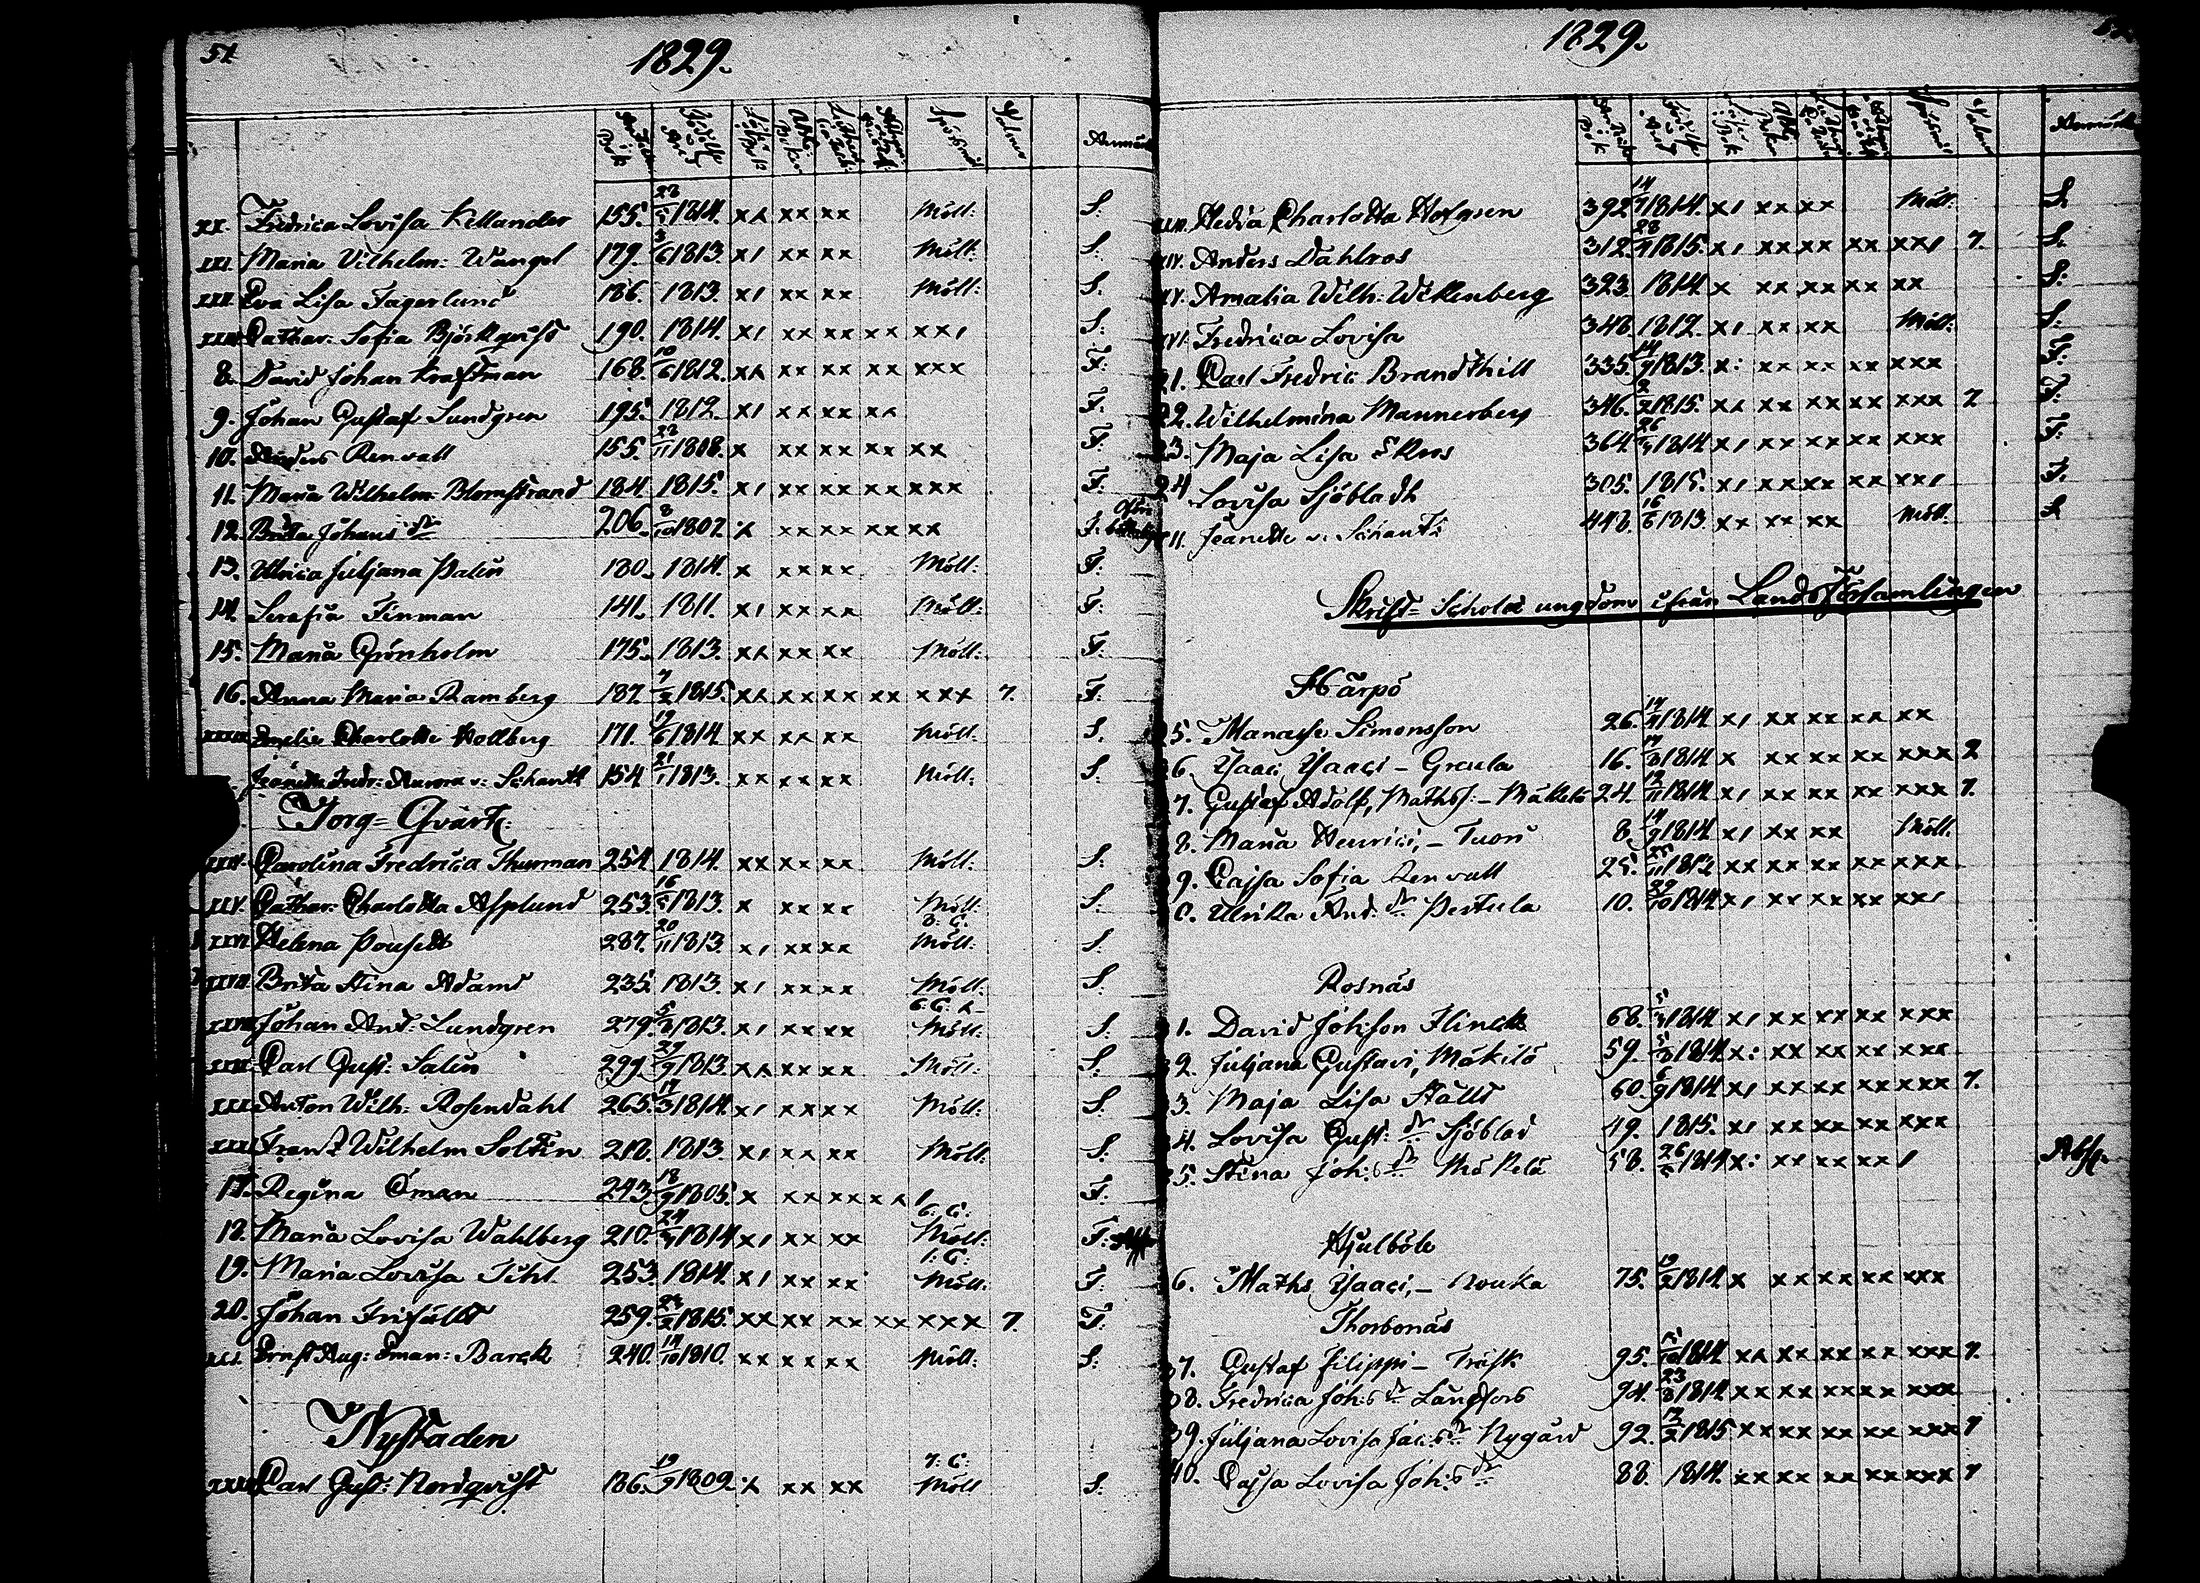 51
1829.
Anmärk
XX. Fredrica Lovisa Kellander 155. 22/5 1814. xx xx xx Möll: S.
XXI. Maria Vilhelm: Wangel 179. 3/6 1813. x1 xx xx Möll: S.
XXII. Eva Lisa Fagerlund 186. 1813. x1 xx xx Möll: S.
XXIII. Cathar: Sofia Björkqvist 190. 1814. x1 xx xx xx xx1 S:
8. David Johan Kraftman 168. 10/6 1812. xx xx xx xx xxx F:
9. Johan Gustaf Lundgren 195. 1812. x1 xx xx xx F.
10. Anders Renvall 155. 23/11 1808. x xx xx xx xx F.
11. Maria Wilhelm: Blomstrand 184. 1815. x1 xx xx xx xxx F.
12. Brita Johans dr 206. 8/10 1807. x xx xx xx xx F.
13. Ulrica Juljana Palin 180. 1814. x xx xx Möll: F:
14. Serafia Finman 141. 1811. x1 xx xx Möll: F:
15. Maria Grönholm 175. 1813. xx xx xx Möll: F.
16. Anna Maria Ramberg 187. 7/2 1815. xx xx xx xx xxx 7. F.
Amelie Charlotte Hollberg 171. 19/6 1814 xx xx xx Möll. S.
Jeanette Fredr: Aurora v: Schantz 154 21/1 1813. xx xx xx Möll. S:
Torg-Qvart:
XXIV. Carolina Fredrica Thurman 254. 1814. xx xx xx Möll: S:
XXV. Cathar: Charlotta Asplund 253. 16/5 1813. x xx xx Möll. S.
8: C:
XXVI. Helena Pousett 287. 20/11 1813. x1 xx xx Möll: S:
XXVII. Brita Stina Adams 235. 1813. x1 xx xx Möll. S.
XXVIII. Johan And: Lundgren 279. 5/3 1813. x1 xx xx Möll: S:
XXIX. Carl Gust: Salin 299. 29/9 1813. xx xx xx Möll: S.
XXX. Anton Wilh: Rosendahl 265. 17/3 1814. x1 xx xx Möll: S.
XXXI. Frans Wilhelm Soltin 218. 1813. x1 xx xx Möll: S.
17. Regina Öman 243. 18/9 1805. x xx xx xx 1 F.
6: C:
18. Maria Lovisa Wahlberg 210. 24/4 1814 x1 xx xx Möll: F:
1: C:
19. Maria Lovisa Tihl 253. 1814. x1 xx xx Möll: F:
20. Johan Friskelt 259. 22/2 1815. xx xx xx xx xxx 7. F:
Ernst Aug: Eman: Barck 240. 14/10 1810. xx xx xx Möll: S:
Nystaden
7: C:
Carl Gust: Nordqvist 186. 19/9 1809. x xx xx Möll S:
1829.
Anmärk
Hedda Charlotta Hofgren 392. 14/7 1814. x1 xx xx Möll: S.
Anders Dahlros 312. 28/4 1815. x1 xx xx xx xx1 7. S.
Amalia Wilh: Wittenberg 323. 1814. x xx xx xx xx S:
Fredrica Lovisa 348. 1812. x1 xx xx Möll: S:
21. Carl Fredric Brandthill 335. 14/9 1813. x: xx xx xx xxx F:
22. Wilhelmina Mannerberg 346. 2/2 1815. xx xx xx xx xxx 7 F:
23. Maja Lisa Ekroos 364. 26/4 1814. x1 xx xx xx xxx F:
24 Lovisa Sjöbladh 305. 1815. x1 xx xx xx xx1 F.
Jeanette v. Schantz 448. 16/6 1813. xx xx xx Möll. S
Skrift-Schole ungdom ifrån Landsförsamlingen
Härpö
25. Manasse Simonsson 26. 14/4 1814. x1 xx xx xx xx
26. Isaac Isaaci - Greula 16. 17/3 1814 x xx xx xx xxx 2
27. Gustaf Adolf, Mathss: - Mäkelä 24. 12/11 1814. x1 xx xx xx xxx 7.
28. Maria Henrici, - Tuori 8. 14/9 1814. x1 xx xx Möll.
29. Cajsa Sofia Renvall 25. 25/11 1812 xx xx xx xx xxx
30. Ulrika And: dr Pertula 10. 29/10 1814. x1 xx xx xx xx1
Rosnäs
31. David Johsson Flinck 68. 5/4 1814. x1 xx xx xx xxx
32. Juljana Gustavi, Mäkilä 59. 5/3 1814. x: xx xx xx xxx
33. Maja Lisa Ståhl 60. 6/9 1814. x1 xx xx xx xxx 7.
34. Lovisa Gust: dr Sjöblad 49. 1815. x1 xx xx xx xxx
35. Stina Joh:s dr Mäkelä 58. 26/5 1814 x: xx xx xx 1
Hjulböle
36. Maths Isaaci, - Nouka 75. 19/2 1814. x xx xx xx xxx
Thorbonäs
37. Gustaf Filippi - Träsk 95. 15/10 1814. xx xx xx xx xxx 7.
38. Fredrica Joh:s dr Långfors 94. 23/8 1814. xx xx xx xx xxx
39. Juljana Lovisa Jac:s dr Nygård 92. 12/2 1815 xx xx xx xx xxx 7
40. Cajsa Lovisa Joh:s dr 88. 1814. xx xx xx xx xxx 7